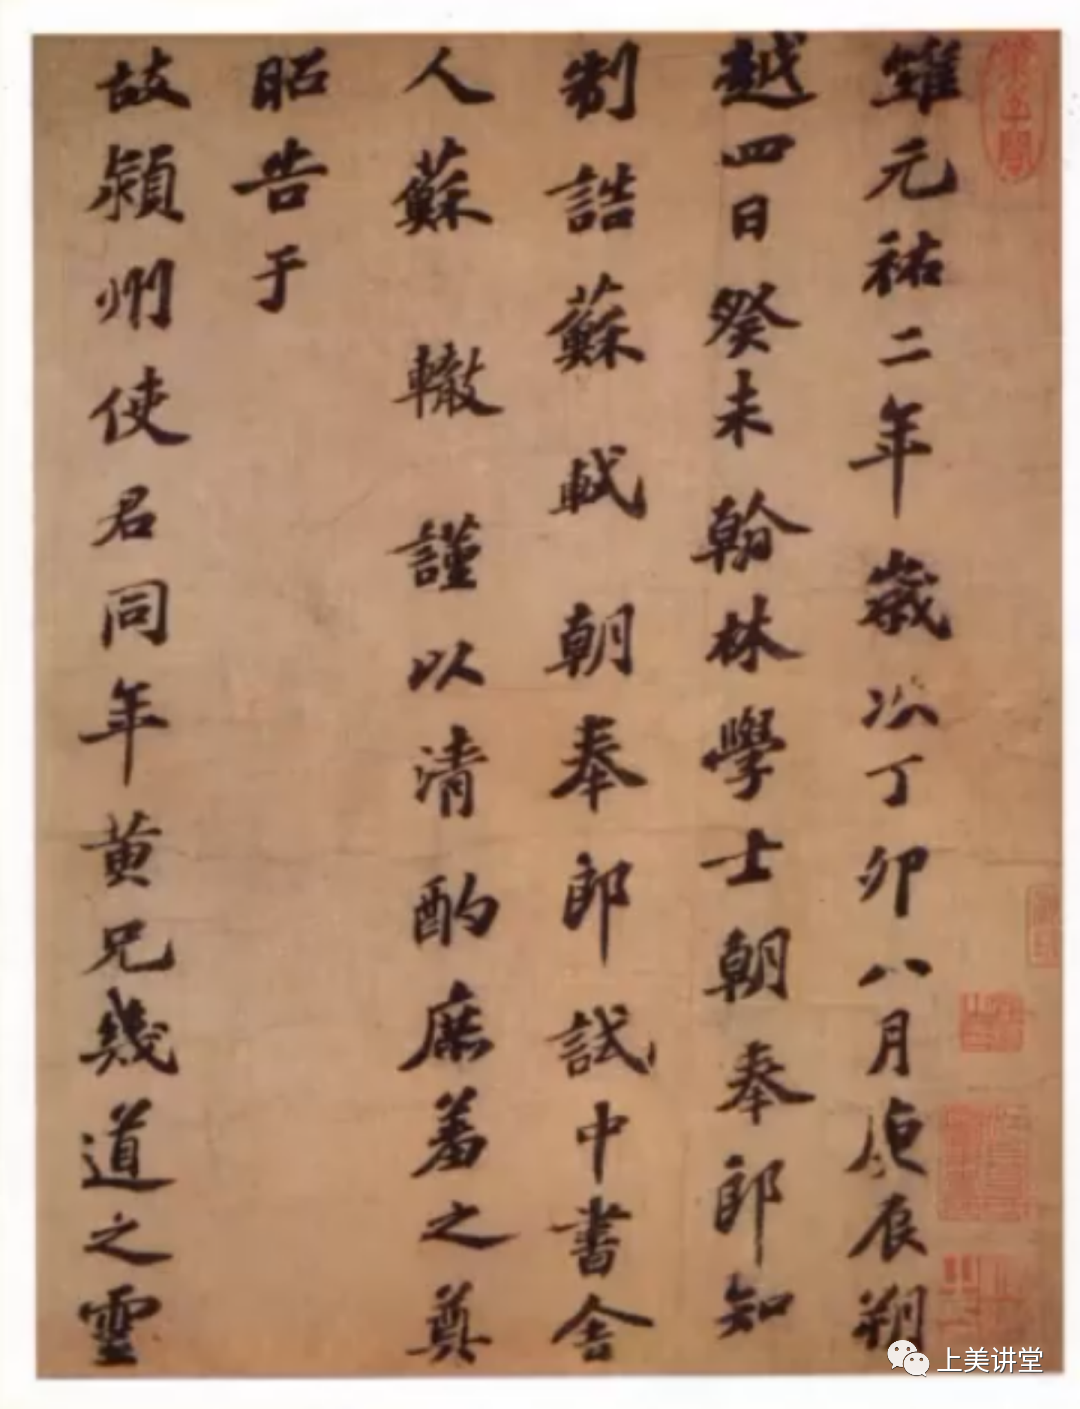 雖元祐二年歲次丁卯八月庚辰朔
越四日癸未翰林學士朝奉郎知
制誥蘇軾朝奉郎試中書舍
人蘇轍謹以清酌庶羞之奠
昭告于
故潁州使君同年黄兄幾道之靈
上美讲堂